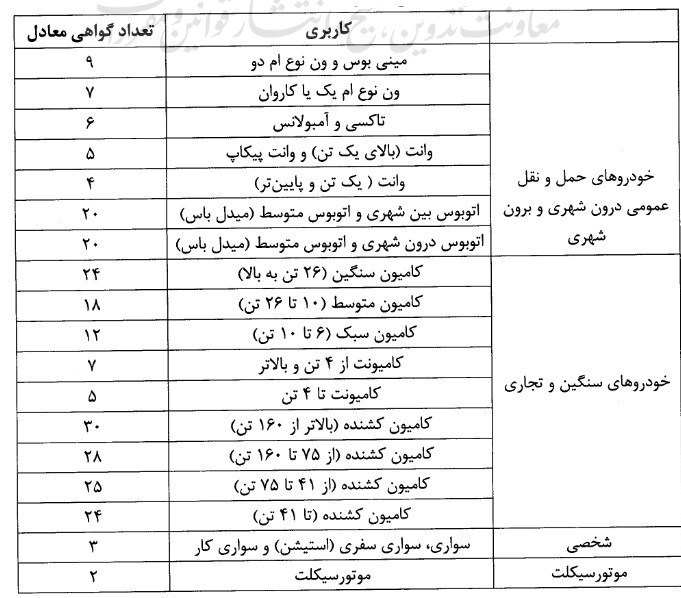 معاونت تدوین، تنقیح و انتشار قوانین و مقررات
کاربری تعداد گواهی معادل
خودروهای حمل و نقل
عمومی درون شهری و برون
شهری
مینی بوس و ون نوع ام دو ۹
ون نوع ام یک یا کاروان ۷
تاکسی و آمبولانس ۶
وانت (بالای یک تن) و وانت پیکاپ ۵
وانت ( یک تن و پایین‌تر) ۴
اتوبوس بین شهری و اتوبوس متوسط (میدل باس) ۲۰
اتوبوس درون شهری و اتوبوس متوسط (میدل باس) ۲۰
خودروهای سنگین و تجاری
کامیون سنگین (۲۶ تن به بالا) ۲۴
کامیون متوسط (۱۰ تا ۲۶ تن) ۱۸
کامیون سبک (۶ تا ۱۰ تن) ۱۲
کامیونت از ۴ تن و بالاتر ۷
کامیونت تا ۴ تن ۵
کامیون کشنده (بالاتر از ۱۶۰ تن) ۳۰
کامیون کشنده (از ۷۵ تا ۱۶۰ تن) ۲۸
کامیون کشنده (از ۴۱ تا ۷۵ تن) ۲۵
کامیون کشنده (تا ۴۱ تن) ۲۴
شخصی سواری، سواری سفری (استیشن) و سواری کار ۳
موتورسیکلت موتورسیکلت ۲